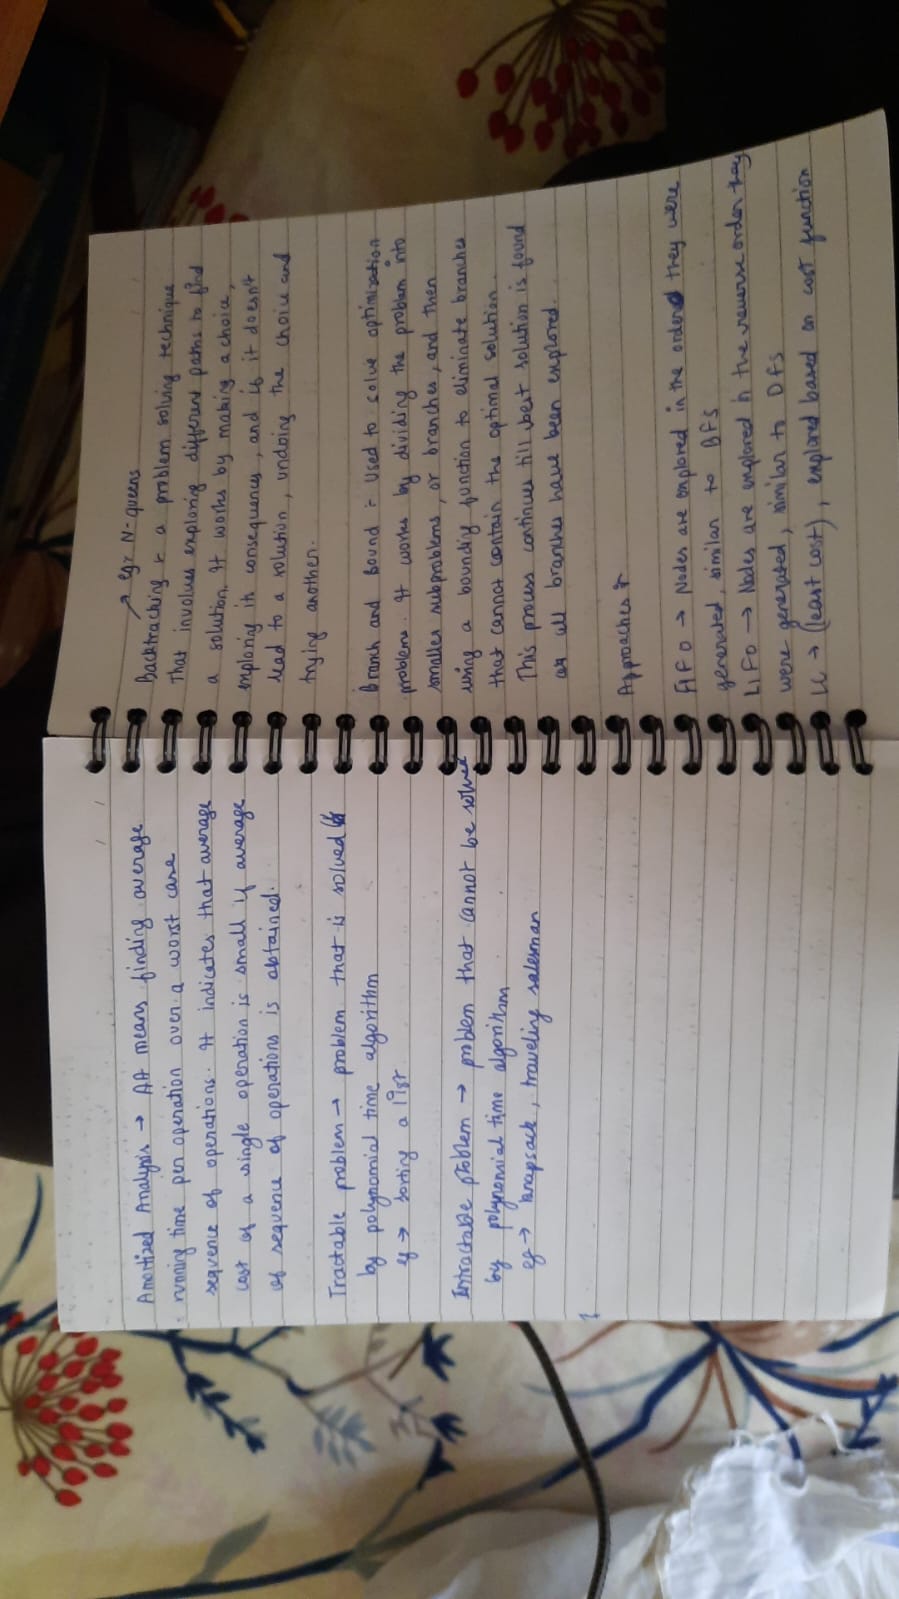 Amortized Analysis → AA means finding average
running time per operation over a worst case
sequence of operations. It indicates that average
cost of a single operation is small if average
of sequence of operations is obtained.
Tractable problem → problem that is solved
by polynomial time algorithm
eg → sorting a list
Intractable problem → problem that cannot be solved
by polynomial time algorithm
eg → knapsack, traveling salesman
→ eg: N-queens
Backtracking :- a problem solving technique
that involves exploring different paths to find
a solution. It works by making a choice,
exploring it consequences, and if it doesn't
lead to a solution, undoing the choice and
trying another.
Branch and Bound :- Used to solve optimization
problems. It works by dividing the problem into
smaller subproblems, or branches, and then
using a bounding function to eliminate branches
that cannot contain the optimal solution.
This process continues till best solution is found
or all branches have been explored.
Approaches :-
FIFO → Nodes are explored in the order they were
generated, similar to BFS
LIFO → Nodes are explored in the reverse order they
were generated, similar to DFS
LC → (least cost), explored based on cost function